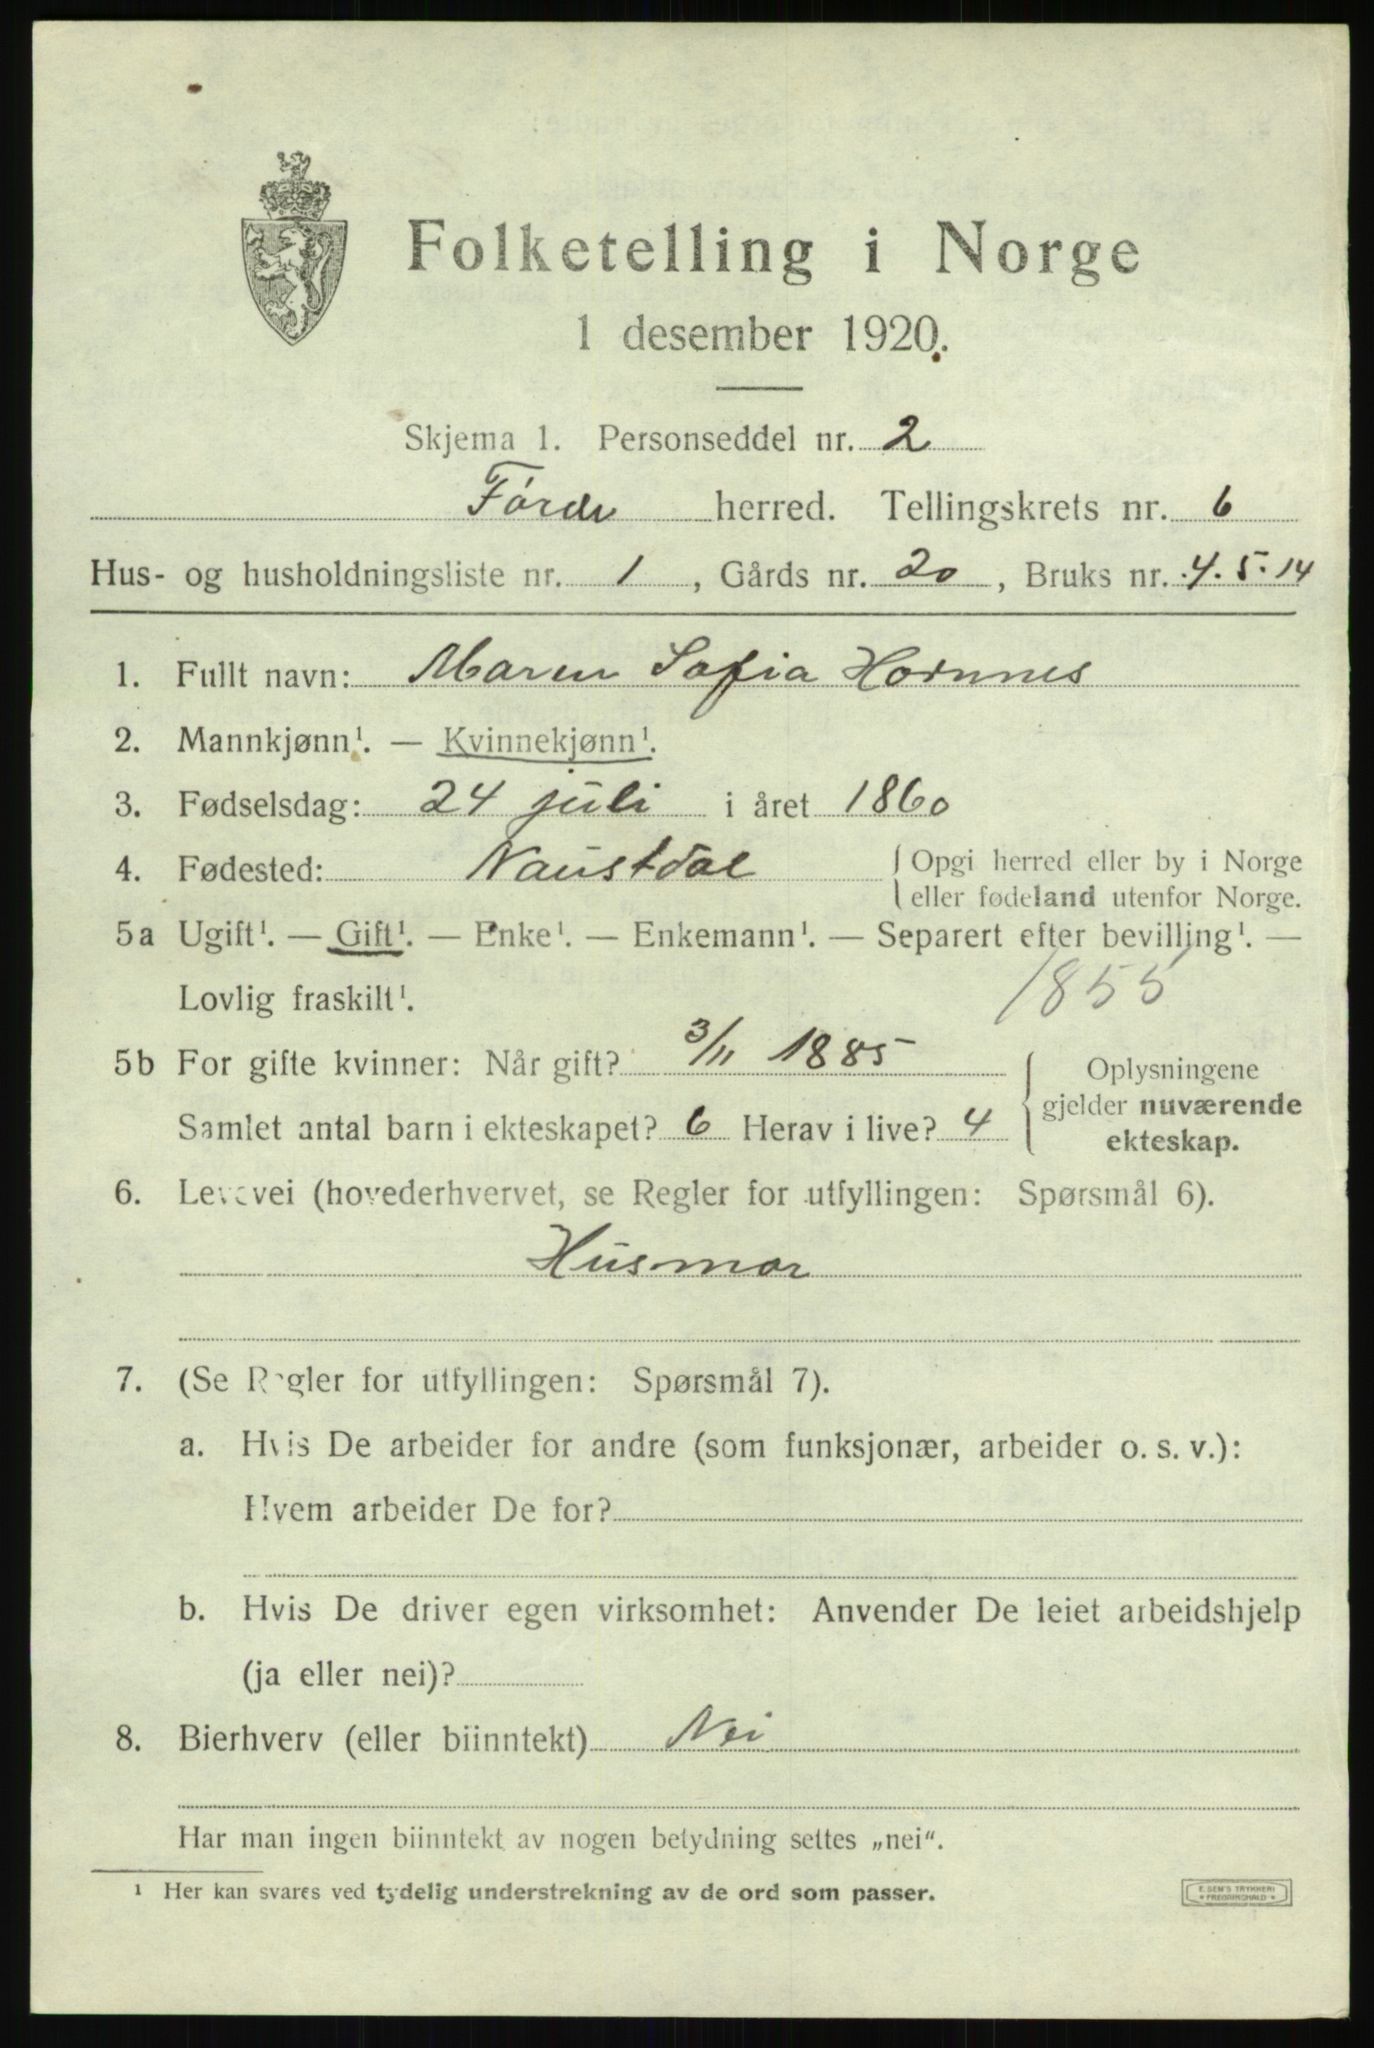 Folketelling i Norge
1 desember 1920.
Skjema 1. Personseddel nr. 2
Førde herred. Tellingskrets nr. 6
Hus- og husholdningsliste nr. 1, Gårds nr. 20, Bruks nr. 4. 5. 14
1. Fullt navn: Maren Sofia Hornnes
2. Mannkjønn¹. — Kvinnekjønn¹.
3. Fødselsdag: 24 juli i året 1860
4. Fødested: Naustdal { Opgi herred eller by i Norge
eller fødeland utenfor Norge.
5a Ugift¹. — Gift¹. — Enke¹. — Enkemann¹. — Separert efter bevilling¹. —
Lovlig fraskilt¹. 1855
5b For gifte kvinner: Når gift? 3/11 1885
Samlet antal barn i ekteskapet? 6 Herav i live? 4
{ Oplysningene
gjelder nuværende
ekteskap.
6. Levevei (hovederhvervet, se Regler for utfyllingen: Spørsmål 6).
Husmor
7. (Se Regler for utfyllingen: Spørsmål 7).
a. Hvis De arbeider for andre (som funksjonær, arbeider o. s. v.):
Hvem arbeider De for?
b. Hvis De driver egen virksomhet: Anvender De leiet arbeidshjelp
(ja eller nei)?
8. Bierhverv (eller biinntekt) Nei
Har man ingen biinntekt av nogen betydning settes „nei“.
¹ Her kan svares ved tydelig understrekning av de ord som passer.
E. SEM'S TRYKKERI
* FREDRIKSHALD *